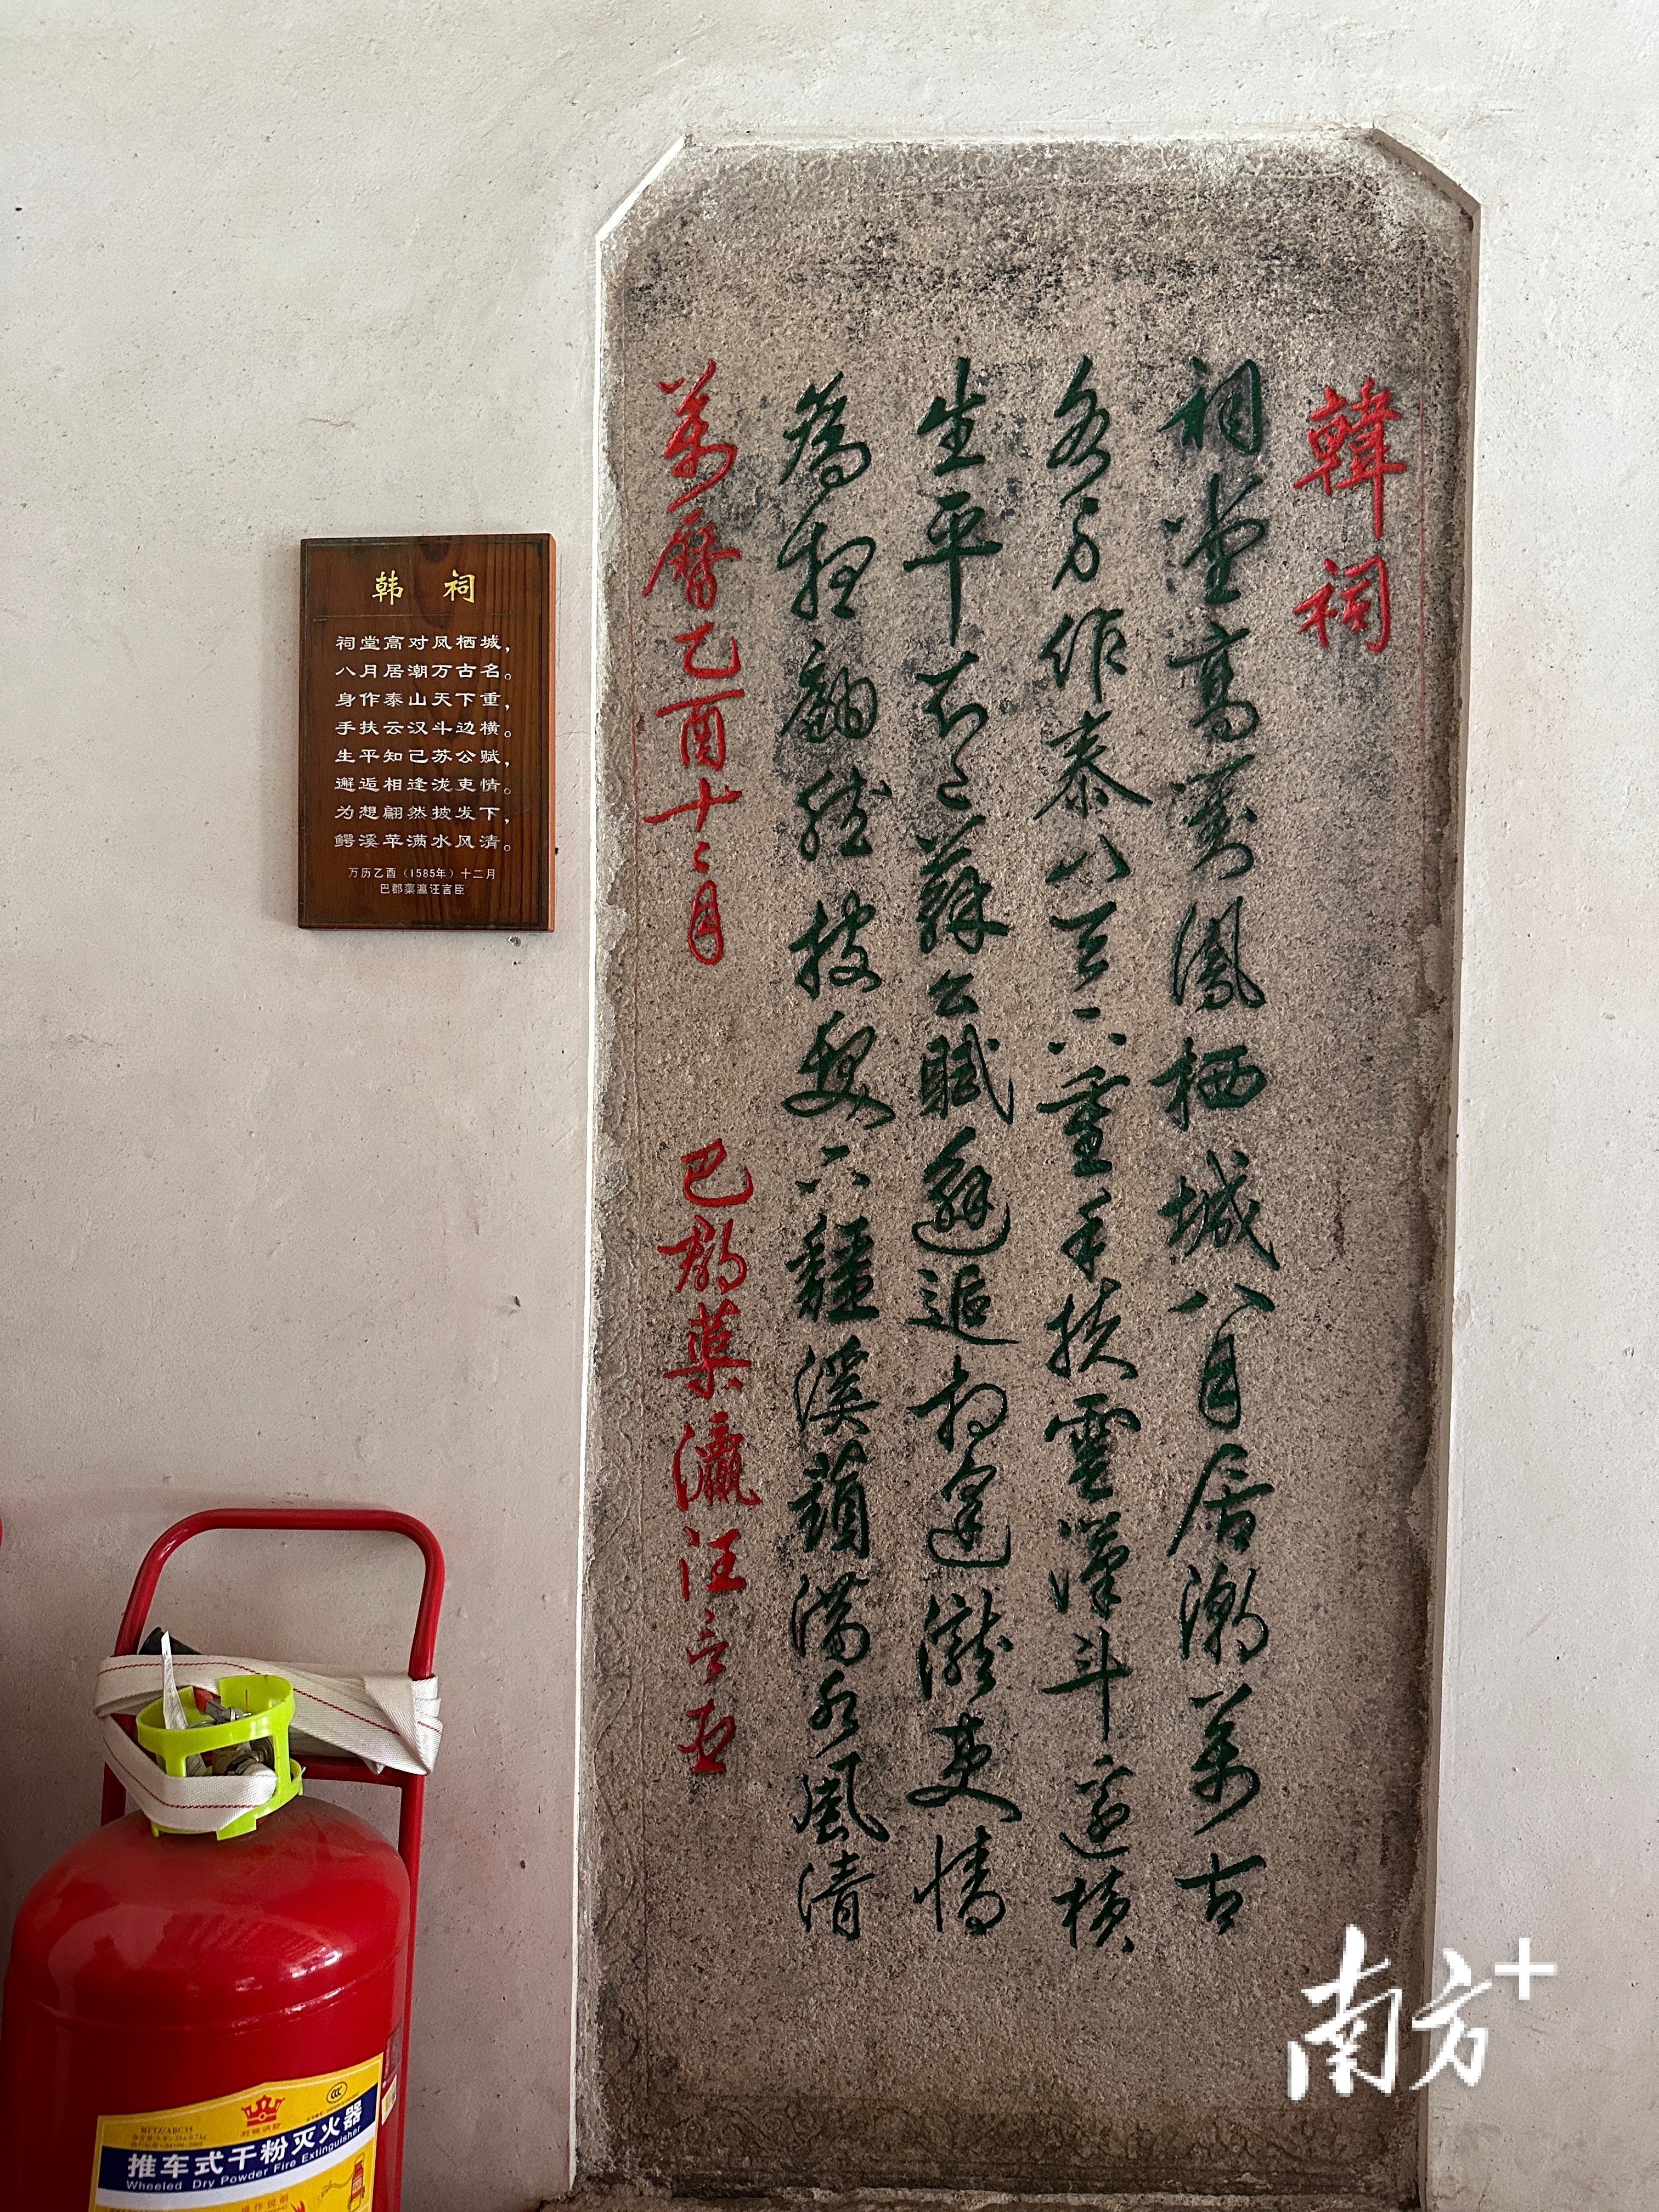 韓祠
祠堂高對鳳栖城八月居潮萬古
名身作泰山天下重手扶雲漢斗邊橫
生平知己蘇公賦邂逅相逢瀧吏情
為想翩然披髮下鱷溪蘋滿水風清
萬曆乙酉十二月 巴郡蕖瀛汪言臣
韩 祠
祠堂高对凤栖城，
八月居潮万古名。
身作泰山天下重，
手扶云汉斗边横。
生平知己苏公赋，
邂逅相逢泷吏情。
为想翩然披发下，
鳄溪苹满水风清。
万历乙酉（1585年）十二月
巴郡蕖瀛汪言臣
MFTZ/ABC35
推车式干粉灭火器
Wheeled Dry Powder Fire Extinguisher
操作说明
南方+